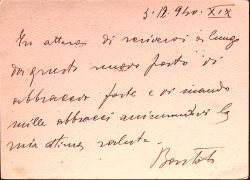 3.12.940. XIX
In attesa di scrivervi a lungo
da questo nuovo posto vi
abbraccio forte e vi mando
mille abbracci
mia ottima salute.